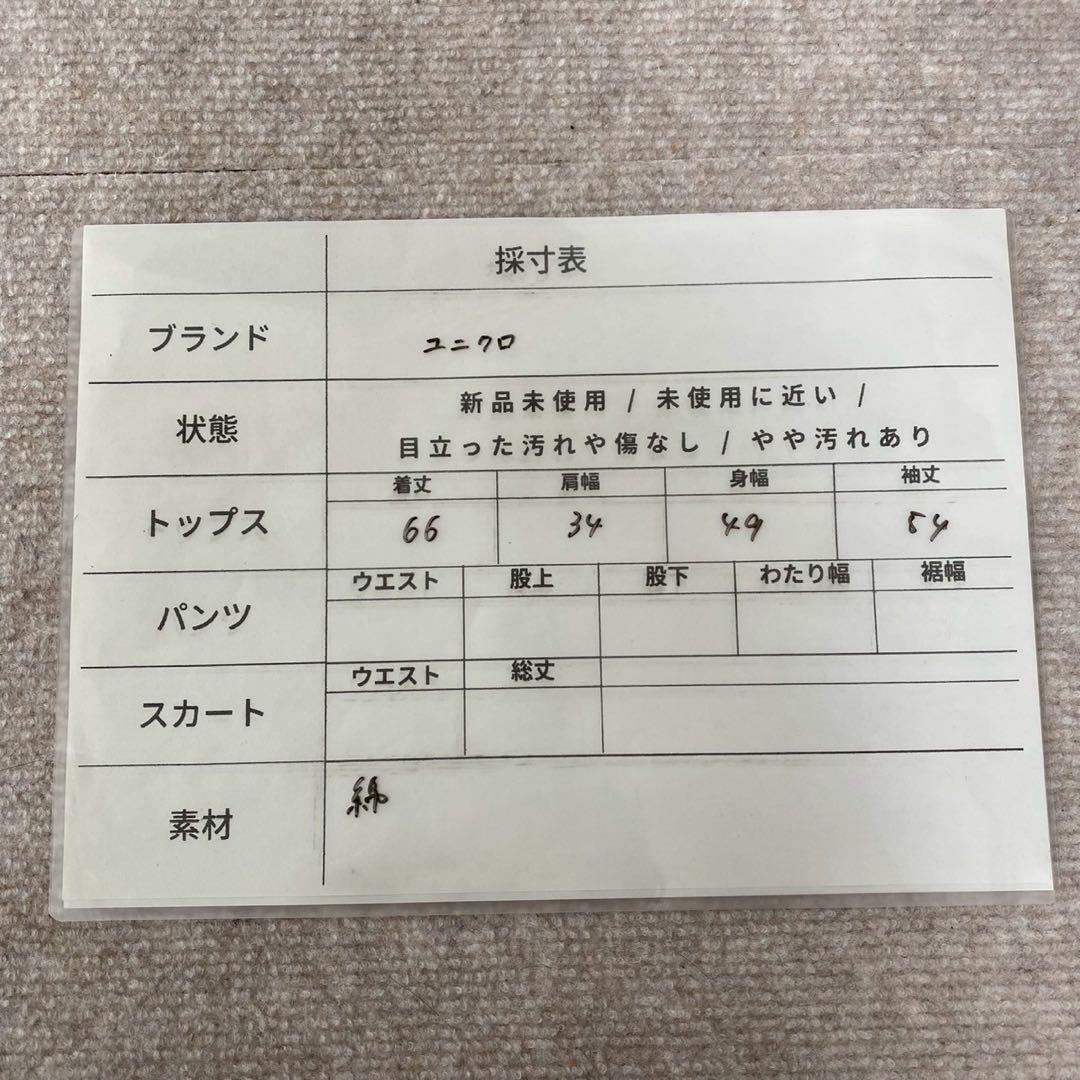 採寸表
ブランド ユニクロ
状態 新品未使用 / 未使用に近い /
目立った汚れや傷なし / やや汚れあり
着丈 肩幅 身幅 袖丈
トップス 66 34 49 54
ウエスト 股上 股下 わたり幅 裾幅
パンツ
ウエスト 総丈
スカート
素材 綿